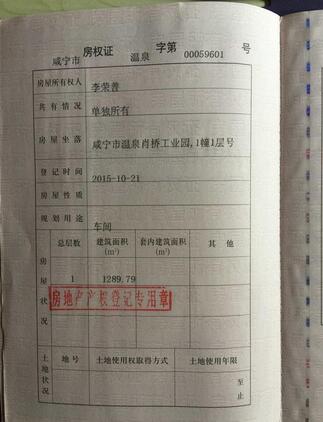 咸宁市 房权证 温泉 字第 00059601 号
房屋所有权人 李荣善
共有情况 单独所有
房屋坐落 咸宁市温泉肖桥工业园,1幢1层号
登记时间 2015-10-21
房屋性质
规划用途 车间
房屋状况 总层数 建筑面积(m²) 套内建筑面积(m²) 其他
1 1289.79
房地产产权登记专用章
土地状况 地号 土地使用权取得方式 土地使用年限
至 止